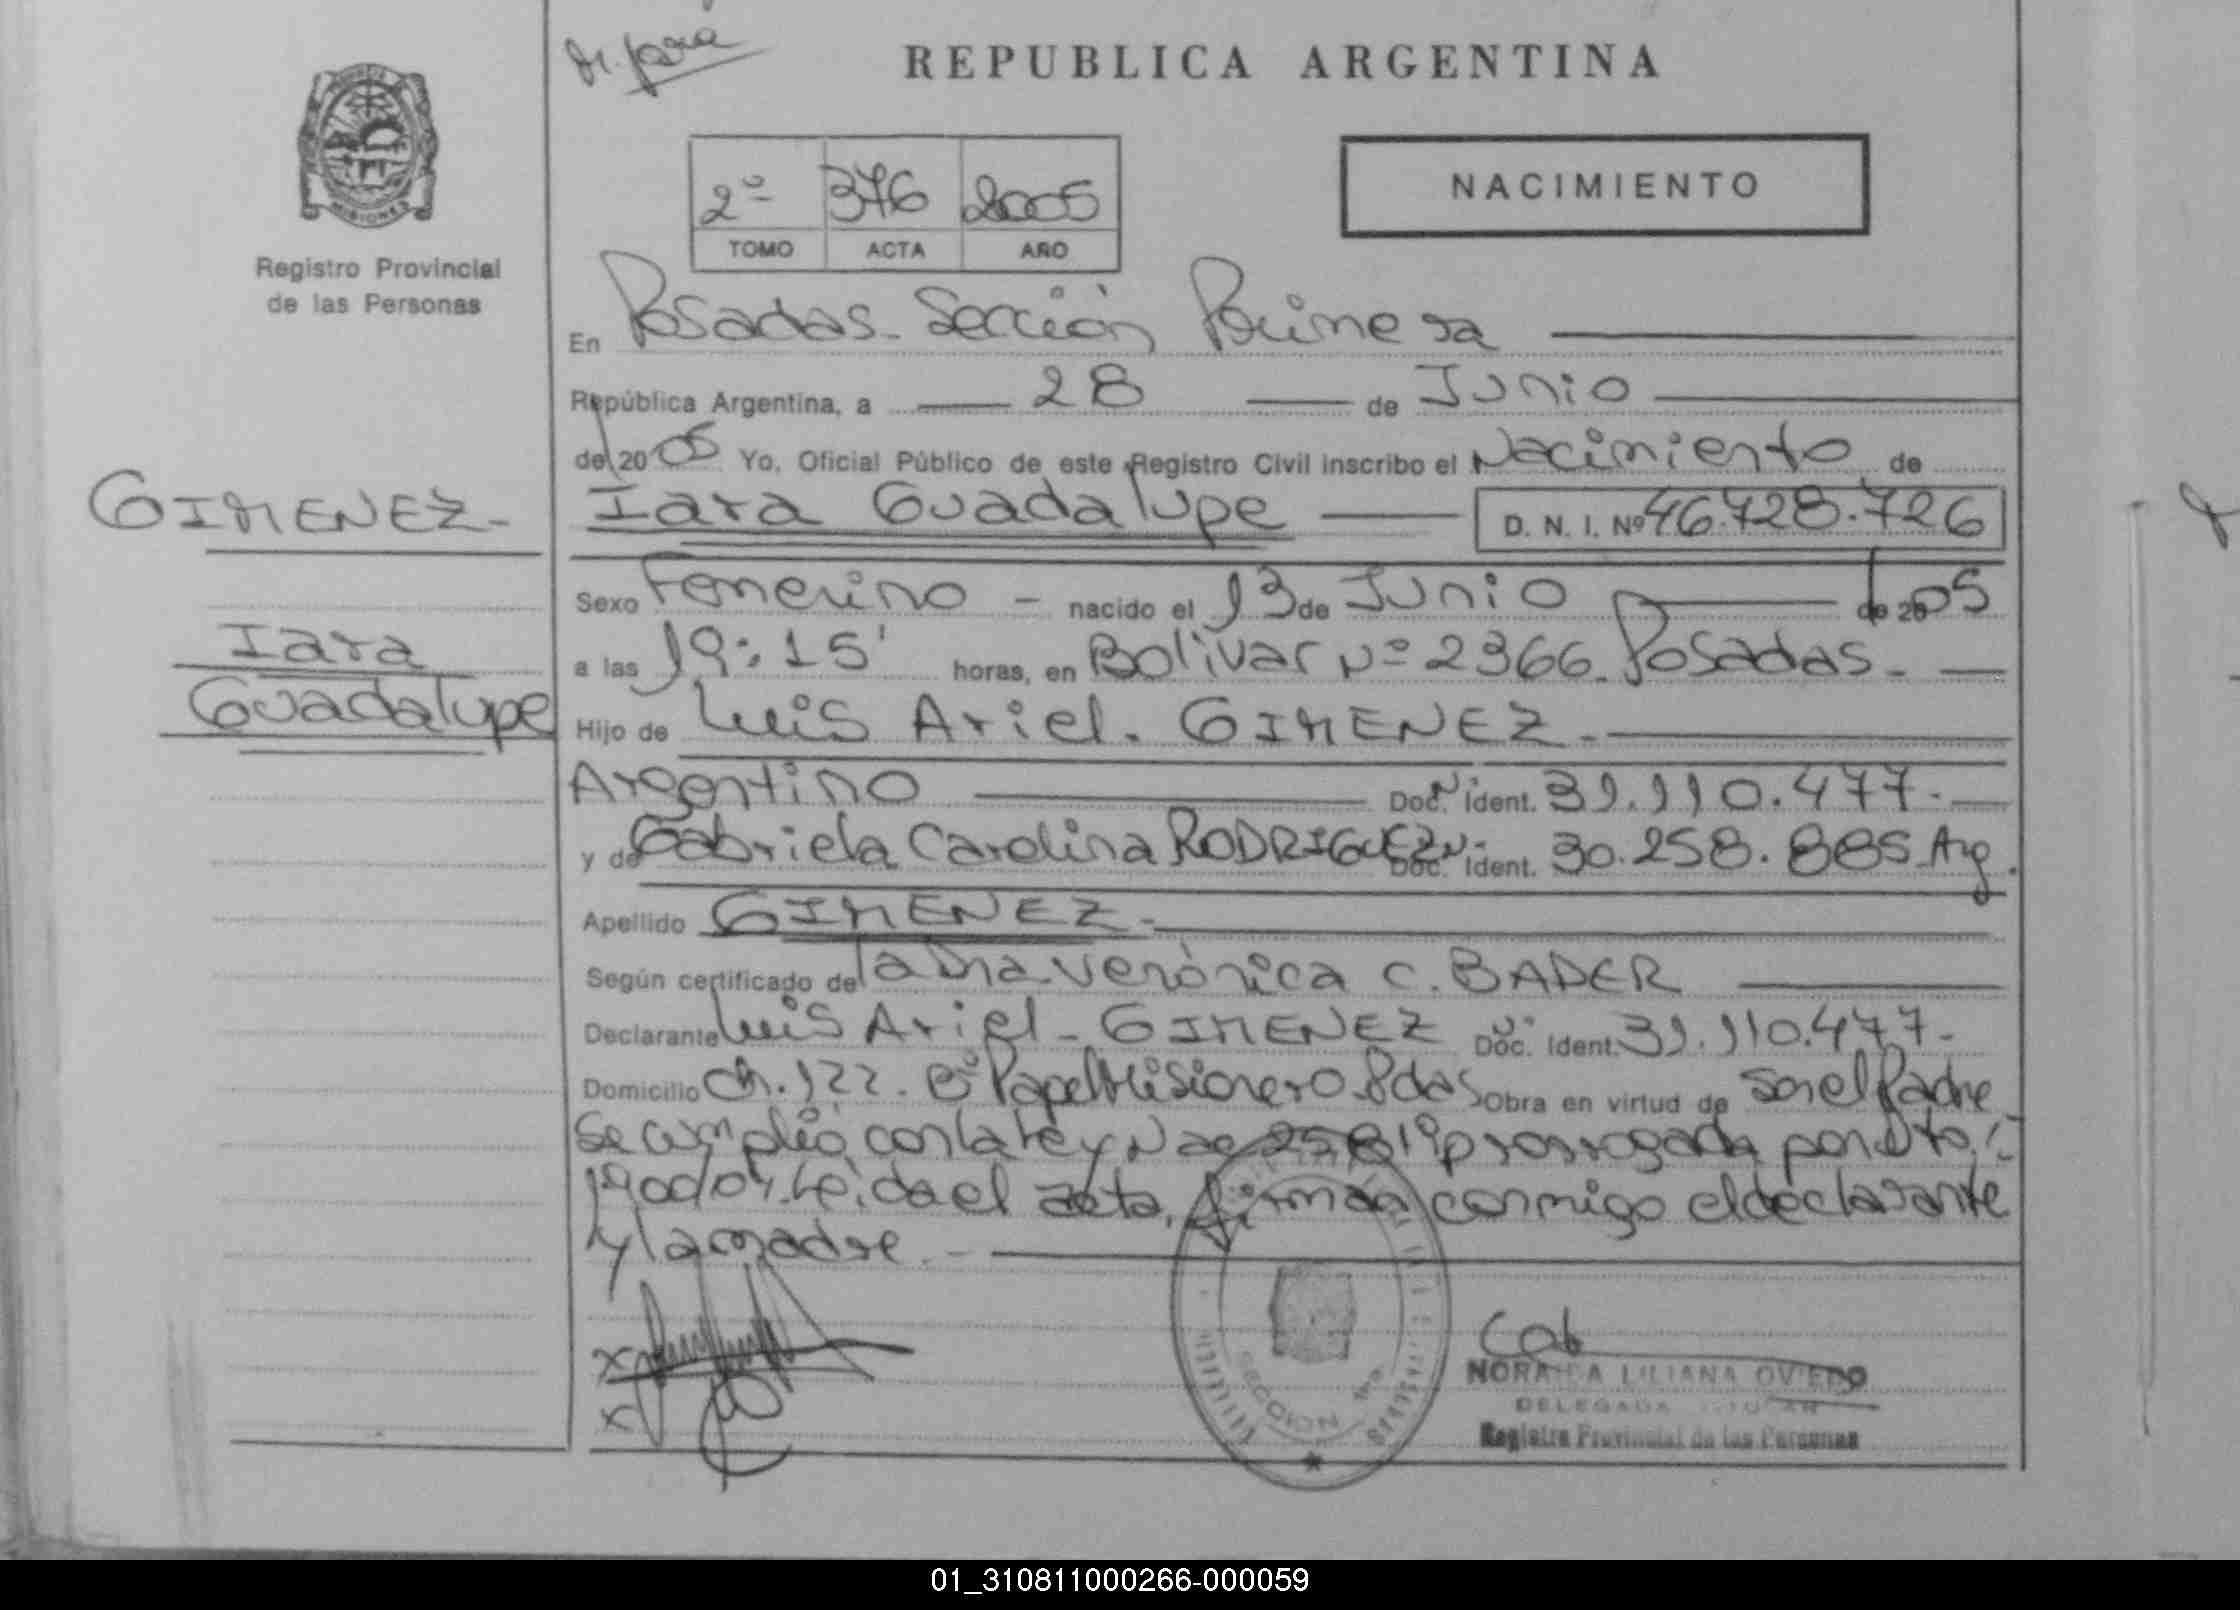 REPUBLICA ARGENTINA
MISIONES
Registro Provincial
de las Personas
2º 376 2005
TOMO ACTA AÑO
NACIMIENTO
En Posadas - Sección Primera
República Argentina, a 28 de Junio
de 2005 Yo, Oficial Público de este Registro Civil inscribo el Nacimiento de
GIMENEZ-
Iara Guadalupe D. N. I. Nº 46.728.726
Sexo Femenino - nacido el 13 de Junio de 2005
Iara
Guadalupe
a las 19:15' horas, en Bolivar Nº 2366. Posadas-
Hijo de Luis Ariel. GIMENEZ-
Argentino Doc. Ident. 31.110.477.
y de Gabriela Carolina RODRIGUEZ Doc. Ident. 30.258.885 Arg.
Apellido GIMENEZ-
Según certificado de la Dra. Verónica C. BADER
Declarante Luis Ariel - GIMENEZ Doc. Ident. 31.110.477-
Domicilio Ch. 122. Bº Papel Misionero - Pdas Obra en virtud de ser el Padre
Se cumplió con la Ley Nac 25819 prorrogada por Dto.
Leída el acta, firman conmigo el declarante
y la madre. -
x
x
SECCION 1ra
LILIANA OVIEDO
DELEGADA
Registro Provincial de las Personas
01_310811000266-000059